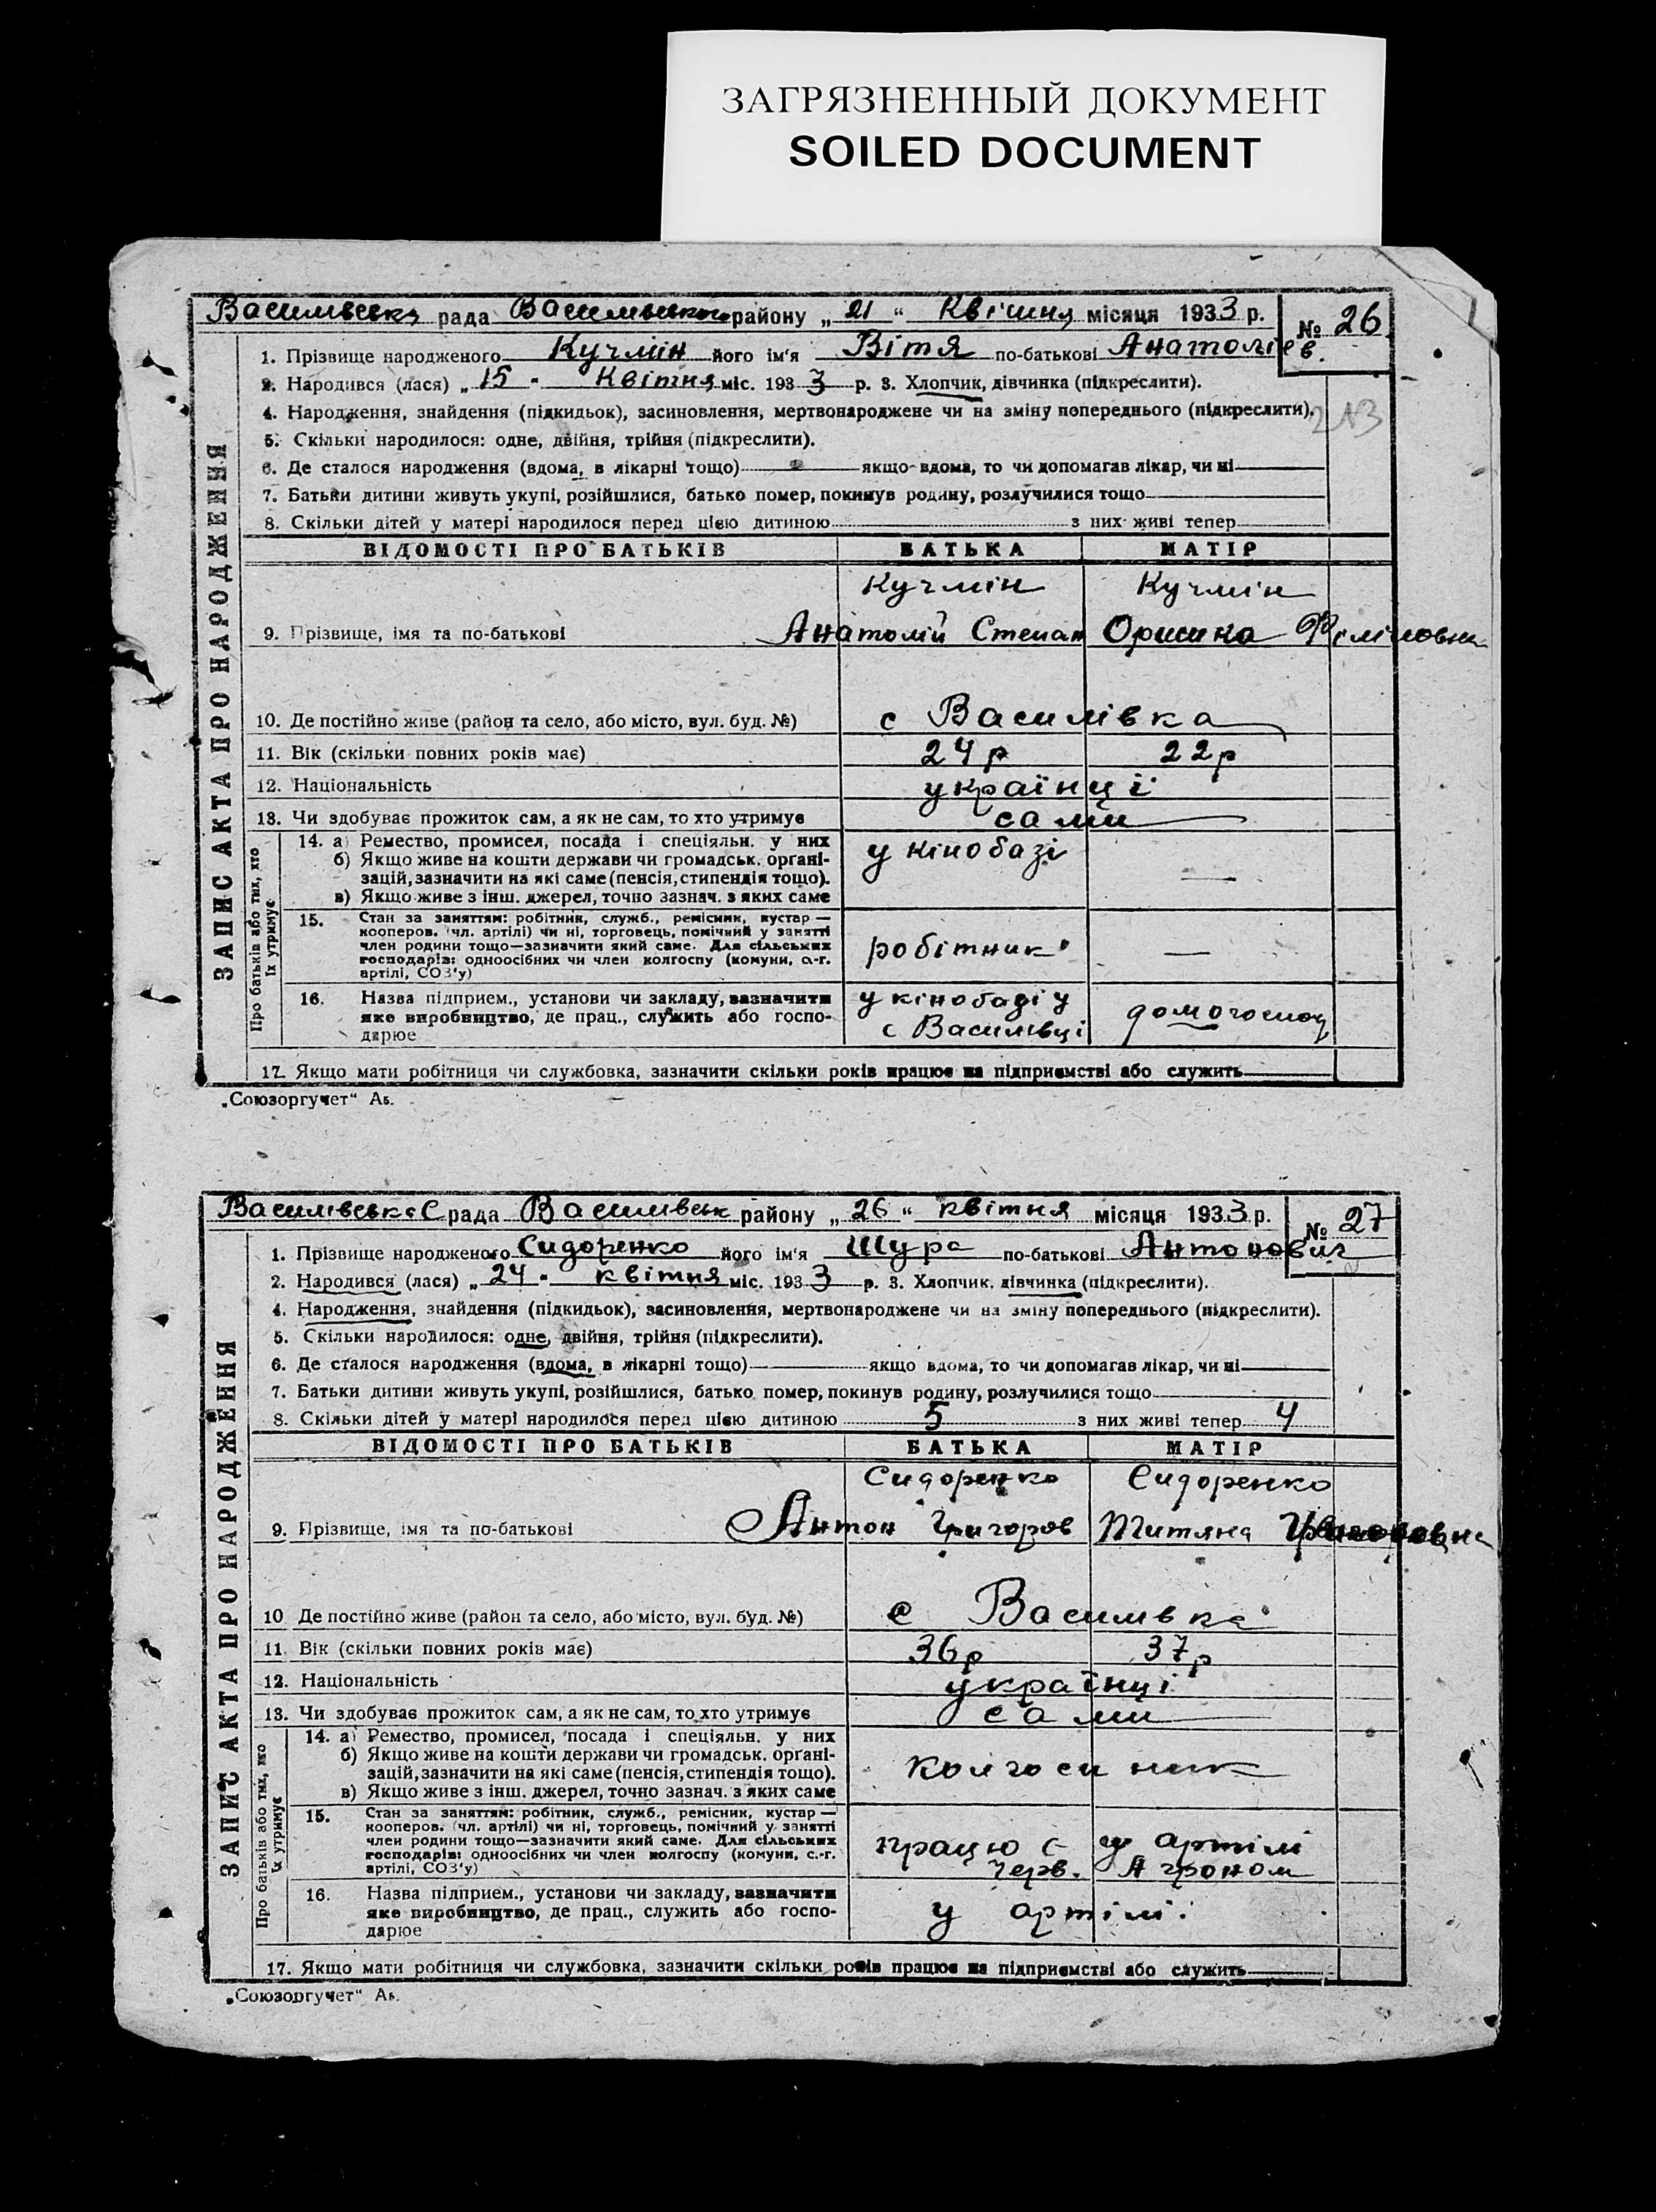 ЗАГРЯЗНЕННЫЙ ДОКУМЕНТ
SOILED DOCUMENT
Василівська рада Василівського району „21“ Квітня місяця 1933 р. № 26
1. Прізвище народженого Кучмін його ім'я Вітя по-батькові Анатолієв.
2. Народився (лася) „15" Квітня міс. 1933 р. 3. Хлопчик, дівчинка (підкреслити).
4. Народження, знайдення (підкидьок), засиновлення, мертвонароджене чи на зміну попереднього (підкреслити).
5. Скільки народилося: одне, двійня, трійня (підкреслити).
6. Де сталося народження (вдома, в лікарні тощо) якщо вдома, то чи допомагав лікар, чи ні
7. Батьки дитини живуть укупі, розійшлися, батько помер, покинув родину, розлучилися тощо
8. Скільки дітей у матері народилося перед цією дитиною з них живі тепер
ЗАПИС АКТА ПРО НАРОДЖЕННЯ
ВІДОМОСТІ ПРО БАТЬКІВ БАТЬКА МАТІР
Кучмін Кучмін
9. Прізвище, імя та по-батькові Анатолій Степан Орисика Філіповна
10. Де постійно живе (район та село, або місто, вул. буд. №) с Василівка
11. Вік (скільки повних років має) 24 р 22 р
12. Національність українці
13. Чи здобуває прожиток сам, а як не сам, то хто утримує сами
Про батьків або тих, хто їх утримує
14. а) Ремество, промисел, посада і спеціяльн. у них у кінобазі —
б) Якщо живе на кошти держави чи громадськ. органі-
зацій, зазначити на які саме (пенсія, стипендія тощо).
в) Якщо живе з інш. джерел, точно зазнач. з яких саме
15. Стан за заняттям: робітник, служб., ремісник, кустар —
кооперов. (чл. артілі) чи ні, торговець, помічний у занятті
член родини тощо—зазначити який саме. Для сільських робітник —
господарів: одноосібних чи член колгоспу (комуни, с.-г.
артілі, СОЗ'у)
16. Назва підприєм., установи чи закладу, зазначити у кінобазі у
яке виробництво, де прац., служить або госпо- с Василівці домогоспод
дарює
17. Якщо мати робітниця чи службовка, зазначити скільки років працює на підприємстві або служить
„Союзоргучет“ Аб.
Василівська С рада Василівськ району „26“ квітня місяця 1933 р. № 27
1. Прізвище народженого Сидоренко його ім'я Шура по-батькові Антонович
2. Народився (лася) „24" квітня міс. 1933 р. 3. Хлопчик, дівчинка (підкреслити).
4. Народження, знайдення (підкидьок), засиновлення, мертвонароджене чи на зміну попереднього (підкреслити).
5. Скільки народилося: одне, двійня, трійня (підкреслити).
6. Де сталося народження (вдома, в лікарні тощо) якщо вдома, то чи допомагав лікар, чи ні
7. Батьки дитини живуть укупі, розійшлися, батько помер, покинув родину, розлучилися тощо
8. Скільки дітей у матері народилося перед цією дитиною 5 з них живі тепер 4
ЗАПИС АКТА ПРО НАРОДЖЕННЯ
ВІДОМОСТІ ПРО БАТЬКІВ БАТЬКА МАТІР
Сидоренко Сидоренко
9. Прізвище, імя та по-батькові Антон Григоров Титяна
10 Де постійно живе (район та село, або місто, вул. буд. №) с Василівка
11. Вік (скільки повних років має) 36 р 37 р
12. Національність українці
13. Чи здобуває прожиток сам, а як не сам, то хто утримує сами
Про батьків або тих, хто їх утримує
14. а) Ремество, промисел, посада і спеціяльн. у них
б) Якщо живе на кошти держави чи громадськ. органі-
зацій, зазначити на які саме (пенсія, стипендія тощо). колгоспник
в) Якщо живе з інш. джерел, точно зазнач. з яких саме
15. Стан за заняттям: робітник, служб., ремісник, кустар —
кооперов. (чл. артілі) чи ні, торговець, помічний у занятті
член родини тощо—зазначити який саме. Для сільських працює у артілі
господарів: одноосібних чи член колгоспу (комуни, с.-г.
артілі, СОЗ'у) Черв. Агроном
16. Назва підприєм., установи чи закладу, зазначити
яке виробництво, де прац., служить або госпо- у артілі
дарює
17. Якщо мати робітниця чи службовка, зазначити скільки років працює на підприємстві або служить
„Союзоргучет“ Аб.